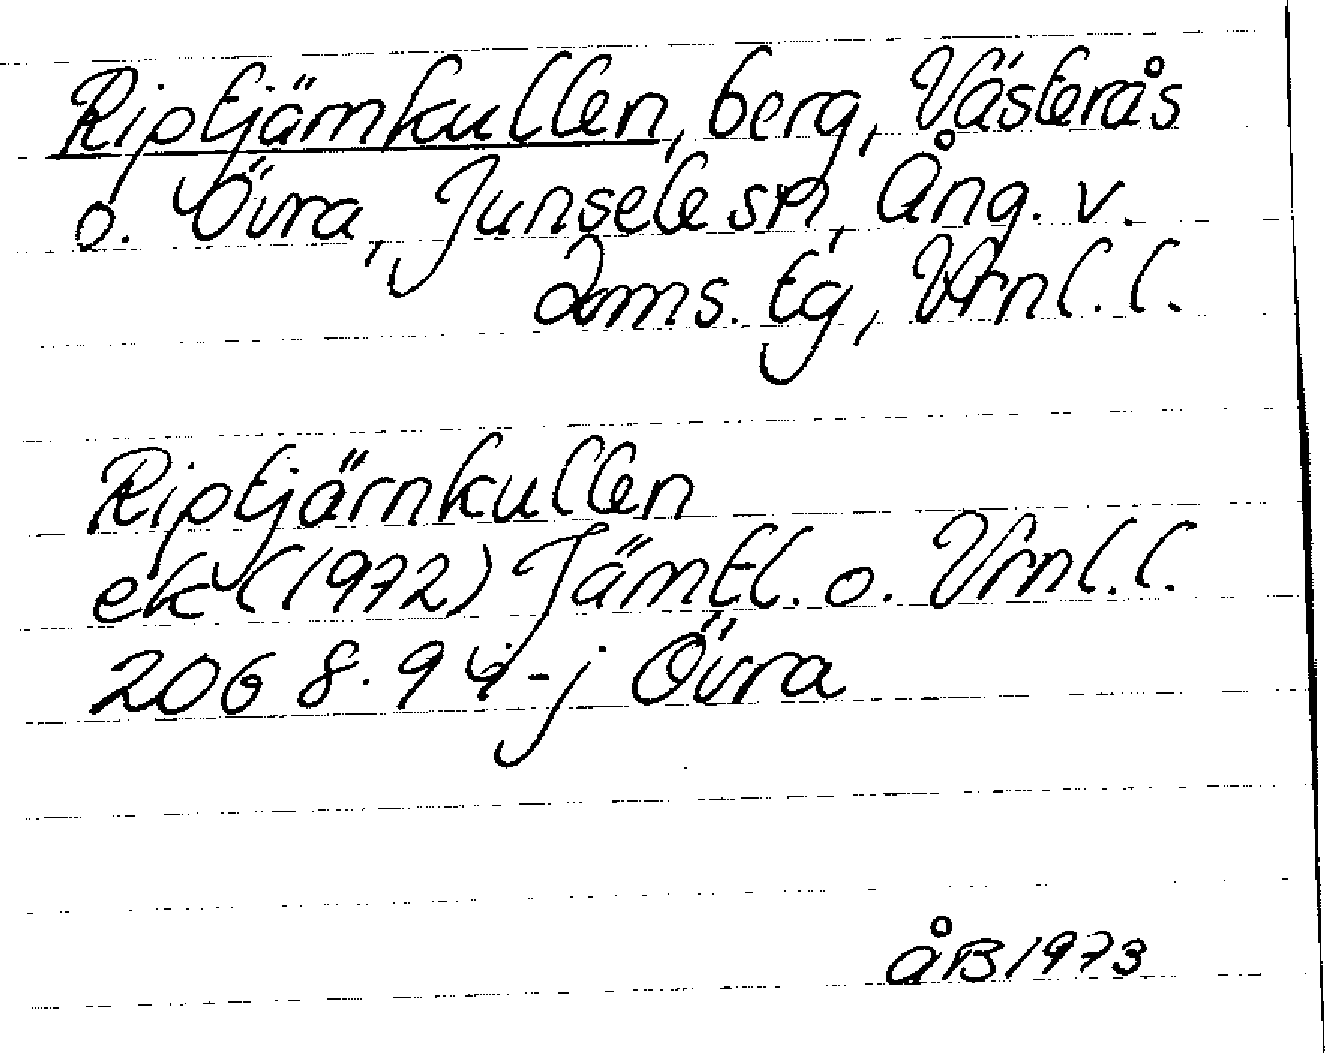 Riptjärnkullen, berg, Västerås
o. Övra, Junsele sn, Ång. v.
doms. tg, Vrnl. l.
Riptjärnkullen
ek (1972) Jämtl. o. Vrnl. l.
206 8. 94-j Övra
åB 1973